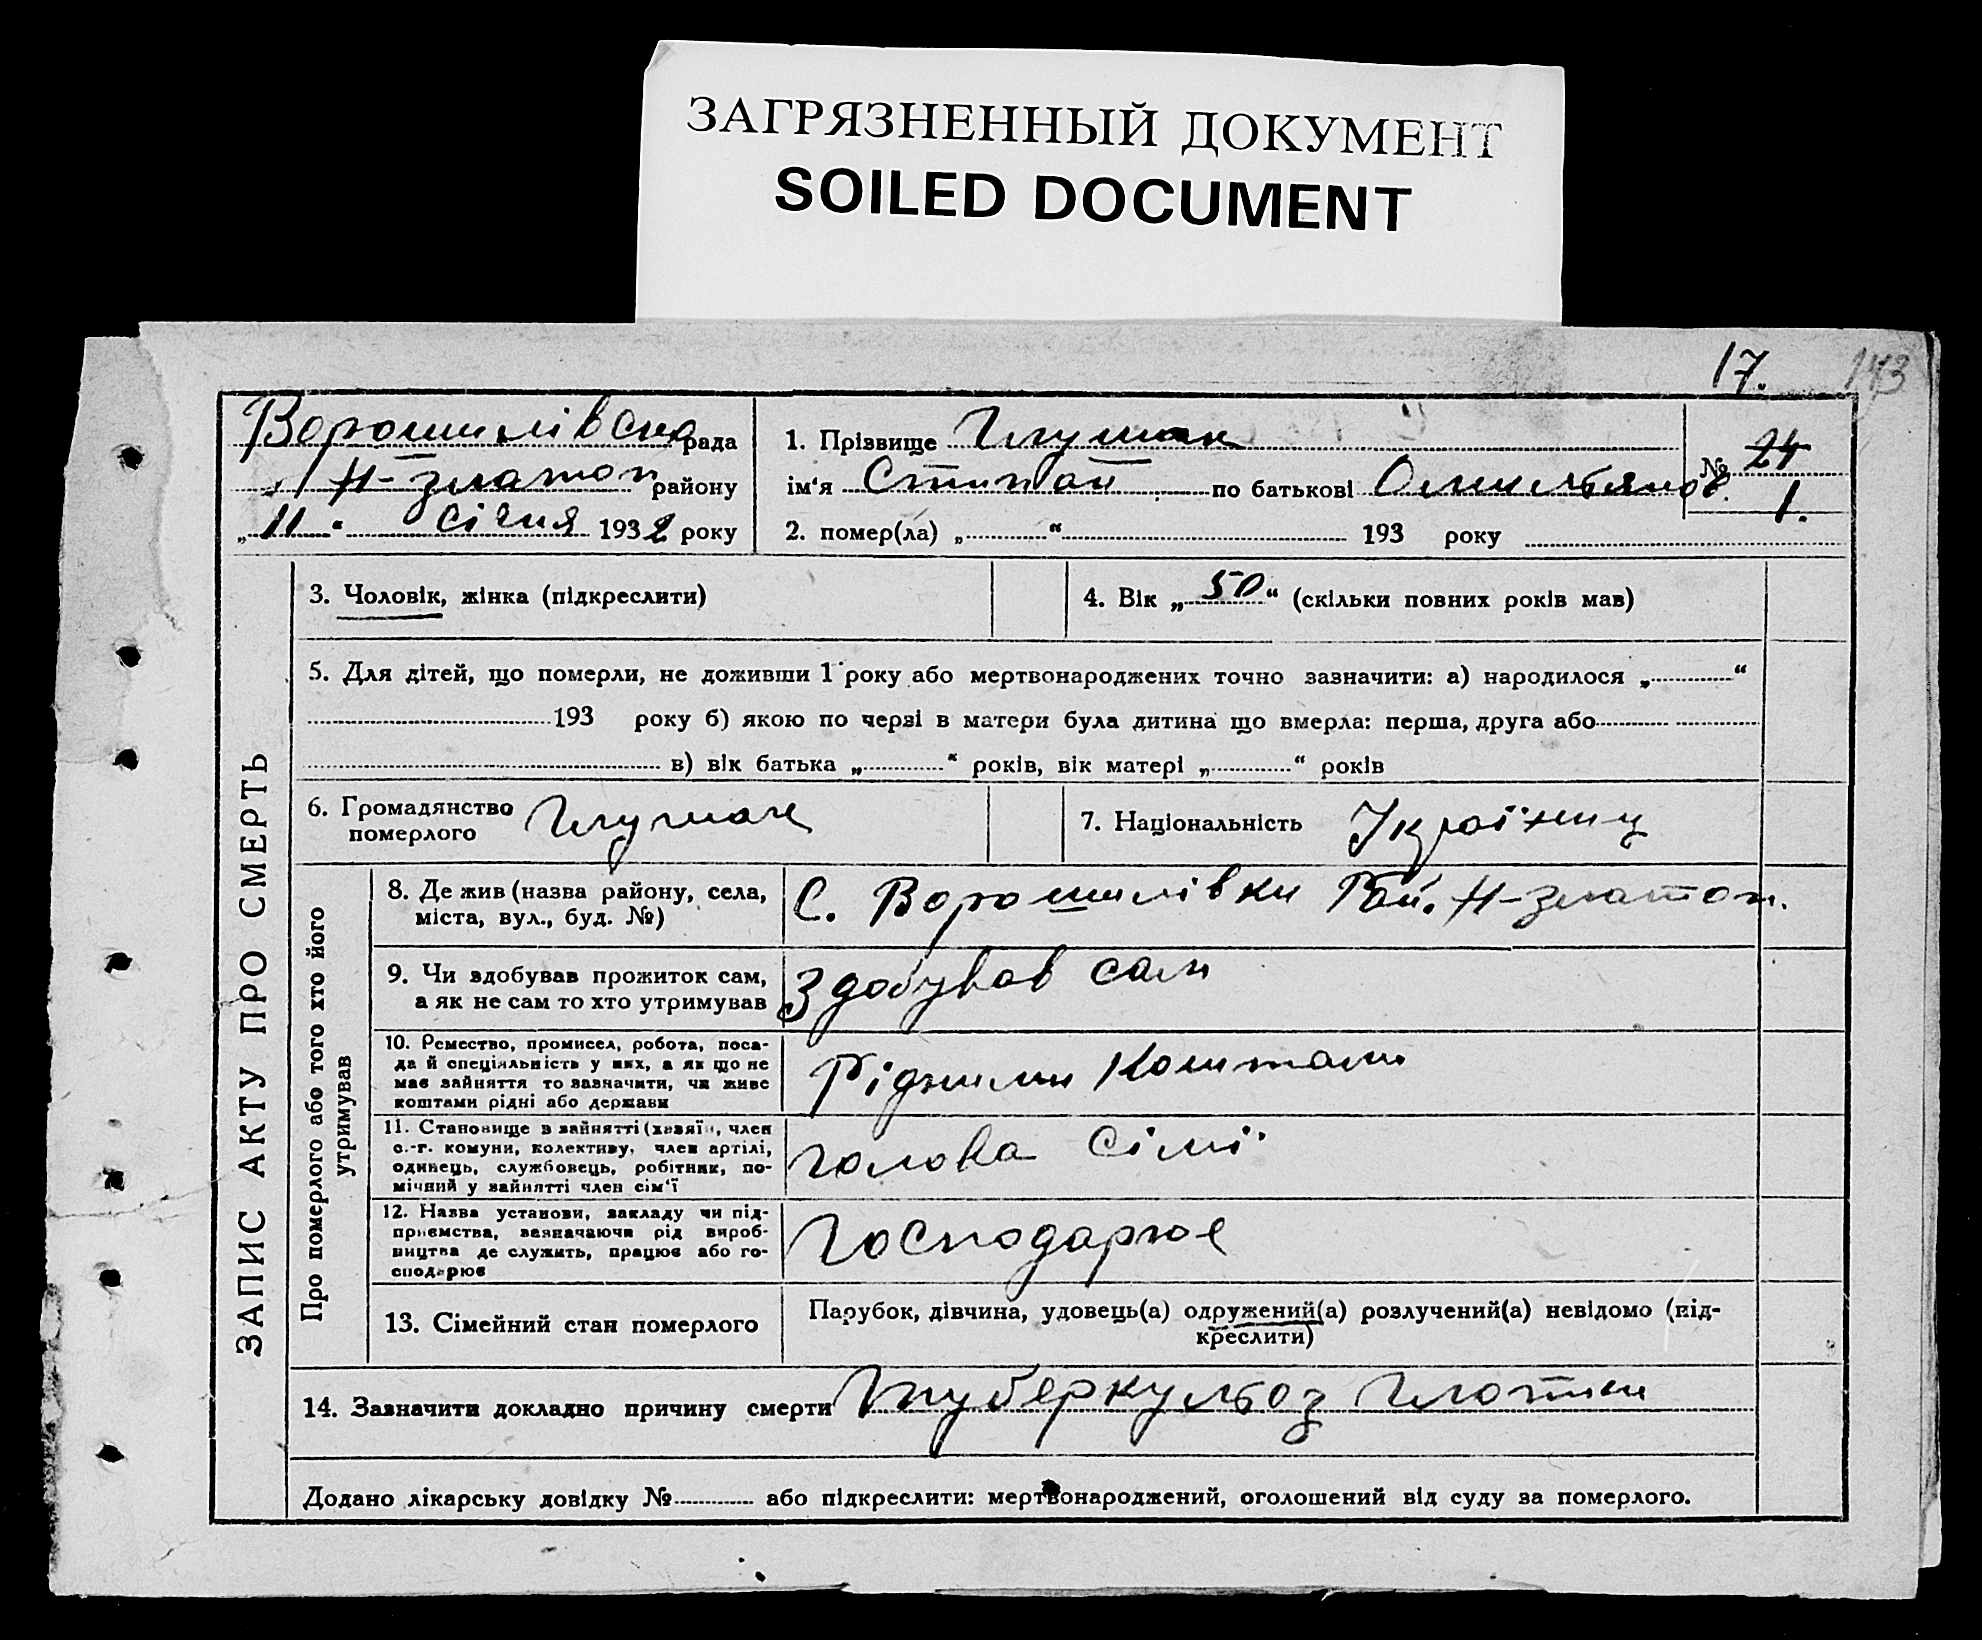 ЗАГРЯЗНЕННЫЙ ДОКУМЕНТ
SOILED DOCUMENT
17. 143
Ворошилівська рада
Н-златоп району
„11“ січня 1932 року
1. Прізвище Глушак
ім'я Степан по батькові Омельянов.
№ 24
1.
2. помер(ла) „ “ 193 року
ЗАПИС АКТУ ПРО СМЕРТЬ
3. Чоловік, жінка (підкреслити)
4. Вік „50“ (скільки повних років мав)
5. Для дітей, що померли, не доживши 1 року або мертвонароджених точно зазначити: а) народилося „ “
193 року б) якою по черзі в матери була дитина що вмерла: перша, друга або
в) вік батька „ “ років, вік матері „ “ років
6. Громадянство
померлого Глушак
7. Національність Українец
Про померлого або того хто його
утримував
8. Де жив (назва району, села,
міста, вул., буд. №)
С. Ворошилівки Рай. Н-златоп.
9. Чи здобував прожиток сам,
а як не сам то хто утримував
Здобував сам
10. Ремество, промисел, робота, поса-
да й спеціяльність у них, а як що не
має зайняття то зазначити, чи живе
коштами рідні або держави
Рідними коштами
11. Становище в зайнятті (хазяїн, член
с.-г. комуни, колективу, член артілі,
одинець, службовець, робітник, по-
мічний у зайнятті член сім'ї
голова сімї
12. Назва установи, закладу чи під-
приємства, зазначаючи рід вироб-
ництва де служить, працює або го-
сподарює
Господарює
13. Сімейний стан померлого
Парубок, дівчина, удовець(а) одружений(а) розлучений(а) невідомо (під-
креслити)
14. Зазначити докладно причину смерти Туберкульоз глотки
Додано лікарську довідку № або підкреслити: мертвонароджений, оголошений від суду за померлого.